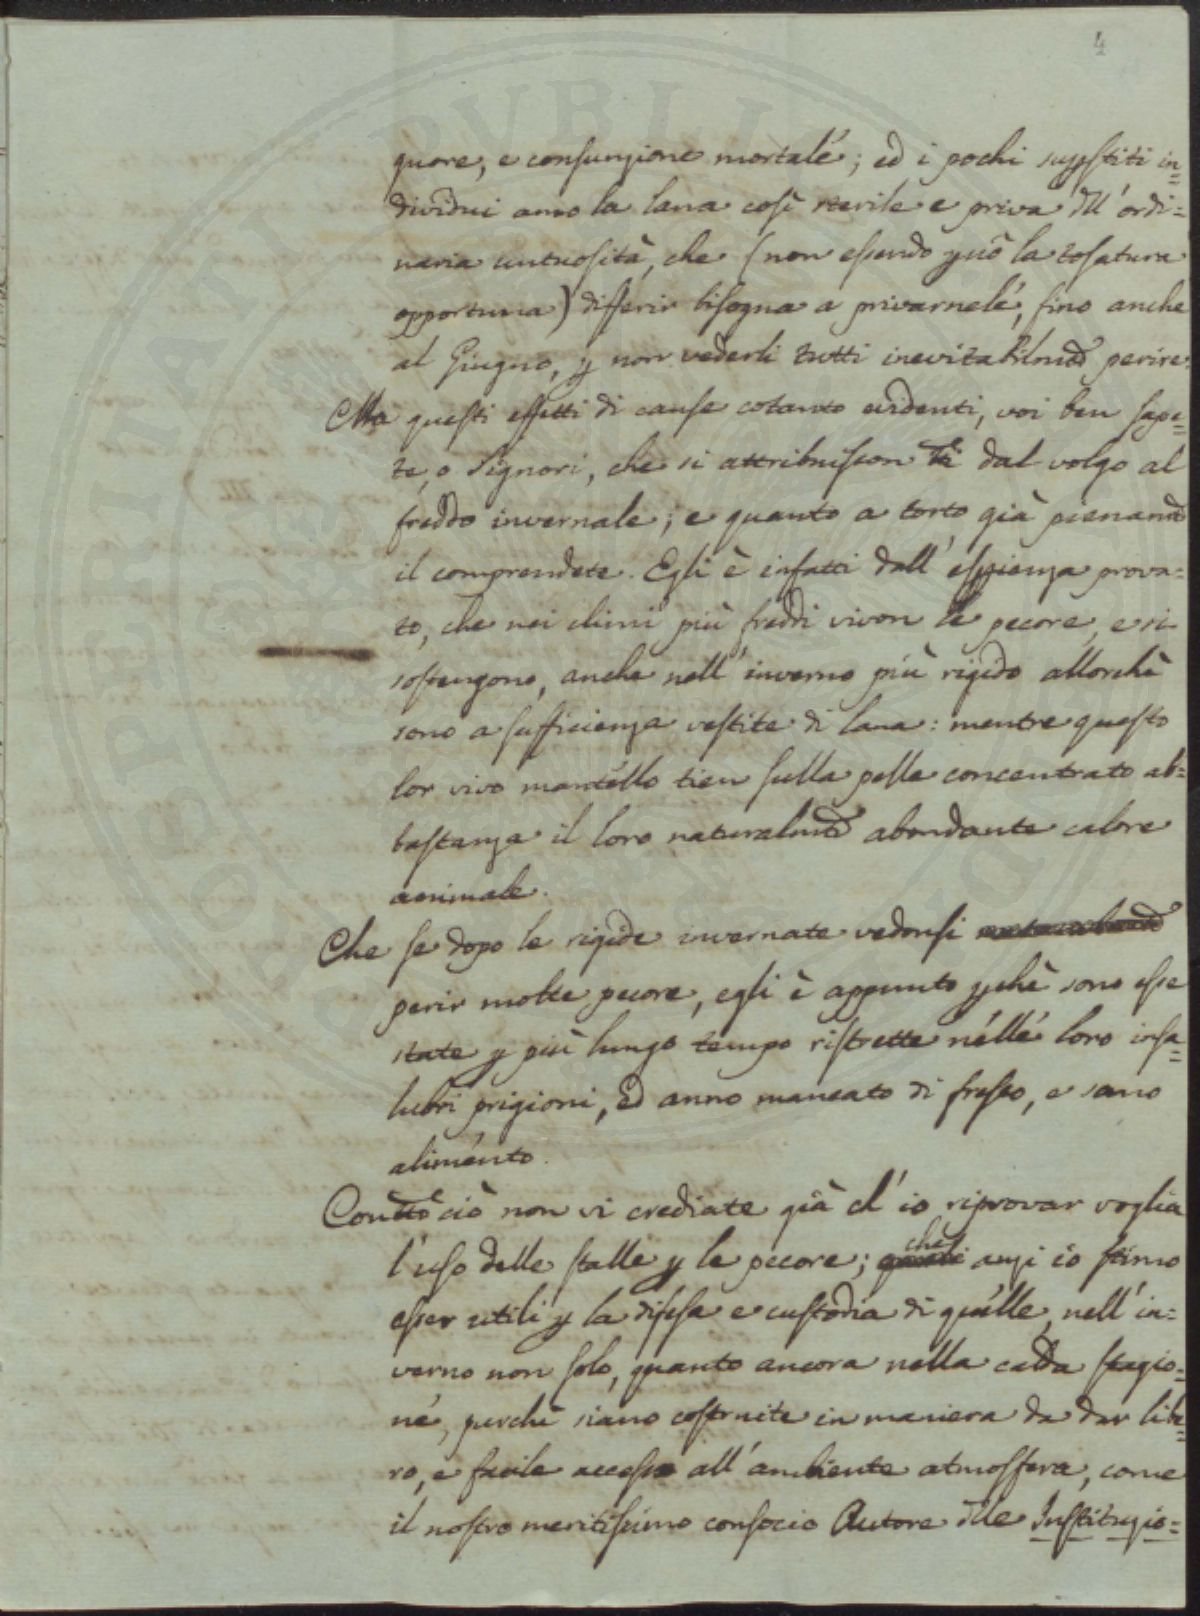 4
guore, e consunzione mortale; ed i pochi supstiti in=
dividui anno la lana così sterile e priva dll' ordi=
naria untuosità, che (non essendo pciò la tosatura
opportuna) differir bisogna a privarnele, fino anche
al Giugno, p non vederli tutti inevitabilmte perire.
Ma questi effetti di cause cotanto evidenti, voi ben sape=
te, o Signori, che si attribuiscon dal volgo al
freddo invernale; e quanto a torto già pienamte
il comprendete. Egli è infatti dall' espienza prova=
to, che nei climi più freddi vivon le pecore, e si
sostengono, anche nell' inverno più rigido allorchè
sono a sufficienza vestite di lana: mentre questo
lor vivo mantello tien sulla pelle concentrato ab=
bastanza il loro naturalmte abondante calore
animale.
Che se dopo le rigide invernate vedonsi
perir molte pecore, egli è appunto pchè sono esse
state p più lungo tempo ristrette nelle loro insa=
lubri prigioni, ed anno mancato di fresco, e sano
alimento.
Con tto ciò non vi crediate già ch' io riprovar voglia
l'uso delle stalle p le pecore; che anzi io stimo
esser utili p la difesa e custodia di quelle, nell' in=
verno non solo, quanto ancora nella calda stagio=
ne, perchè siano costruite in maniera da dar libe=
ro, e facile accesso all' ambiente atmosfera, come
il nostro meritissimo consocio Autore dlle Instituzio=